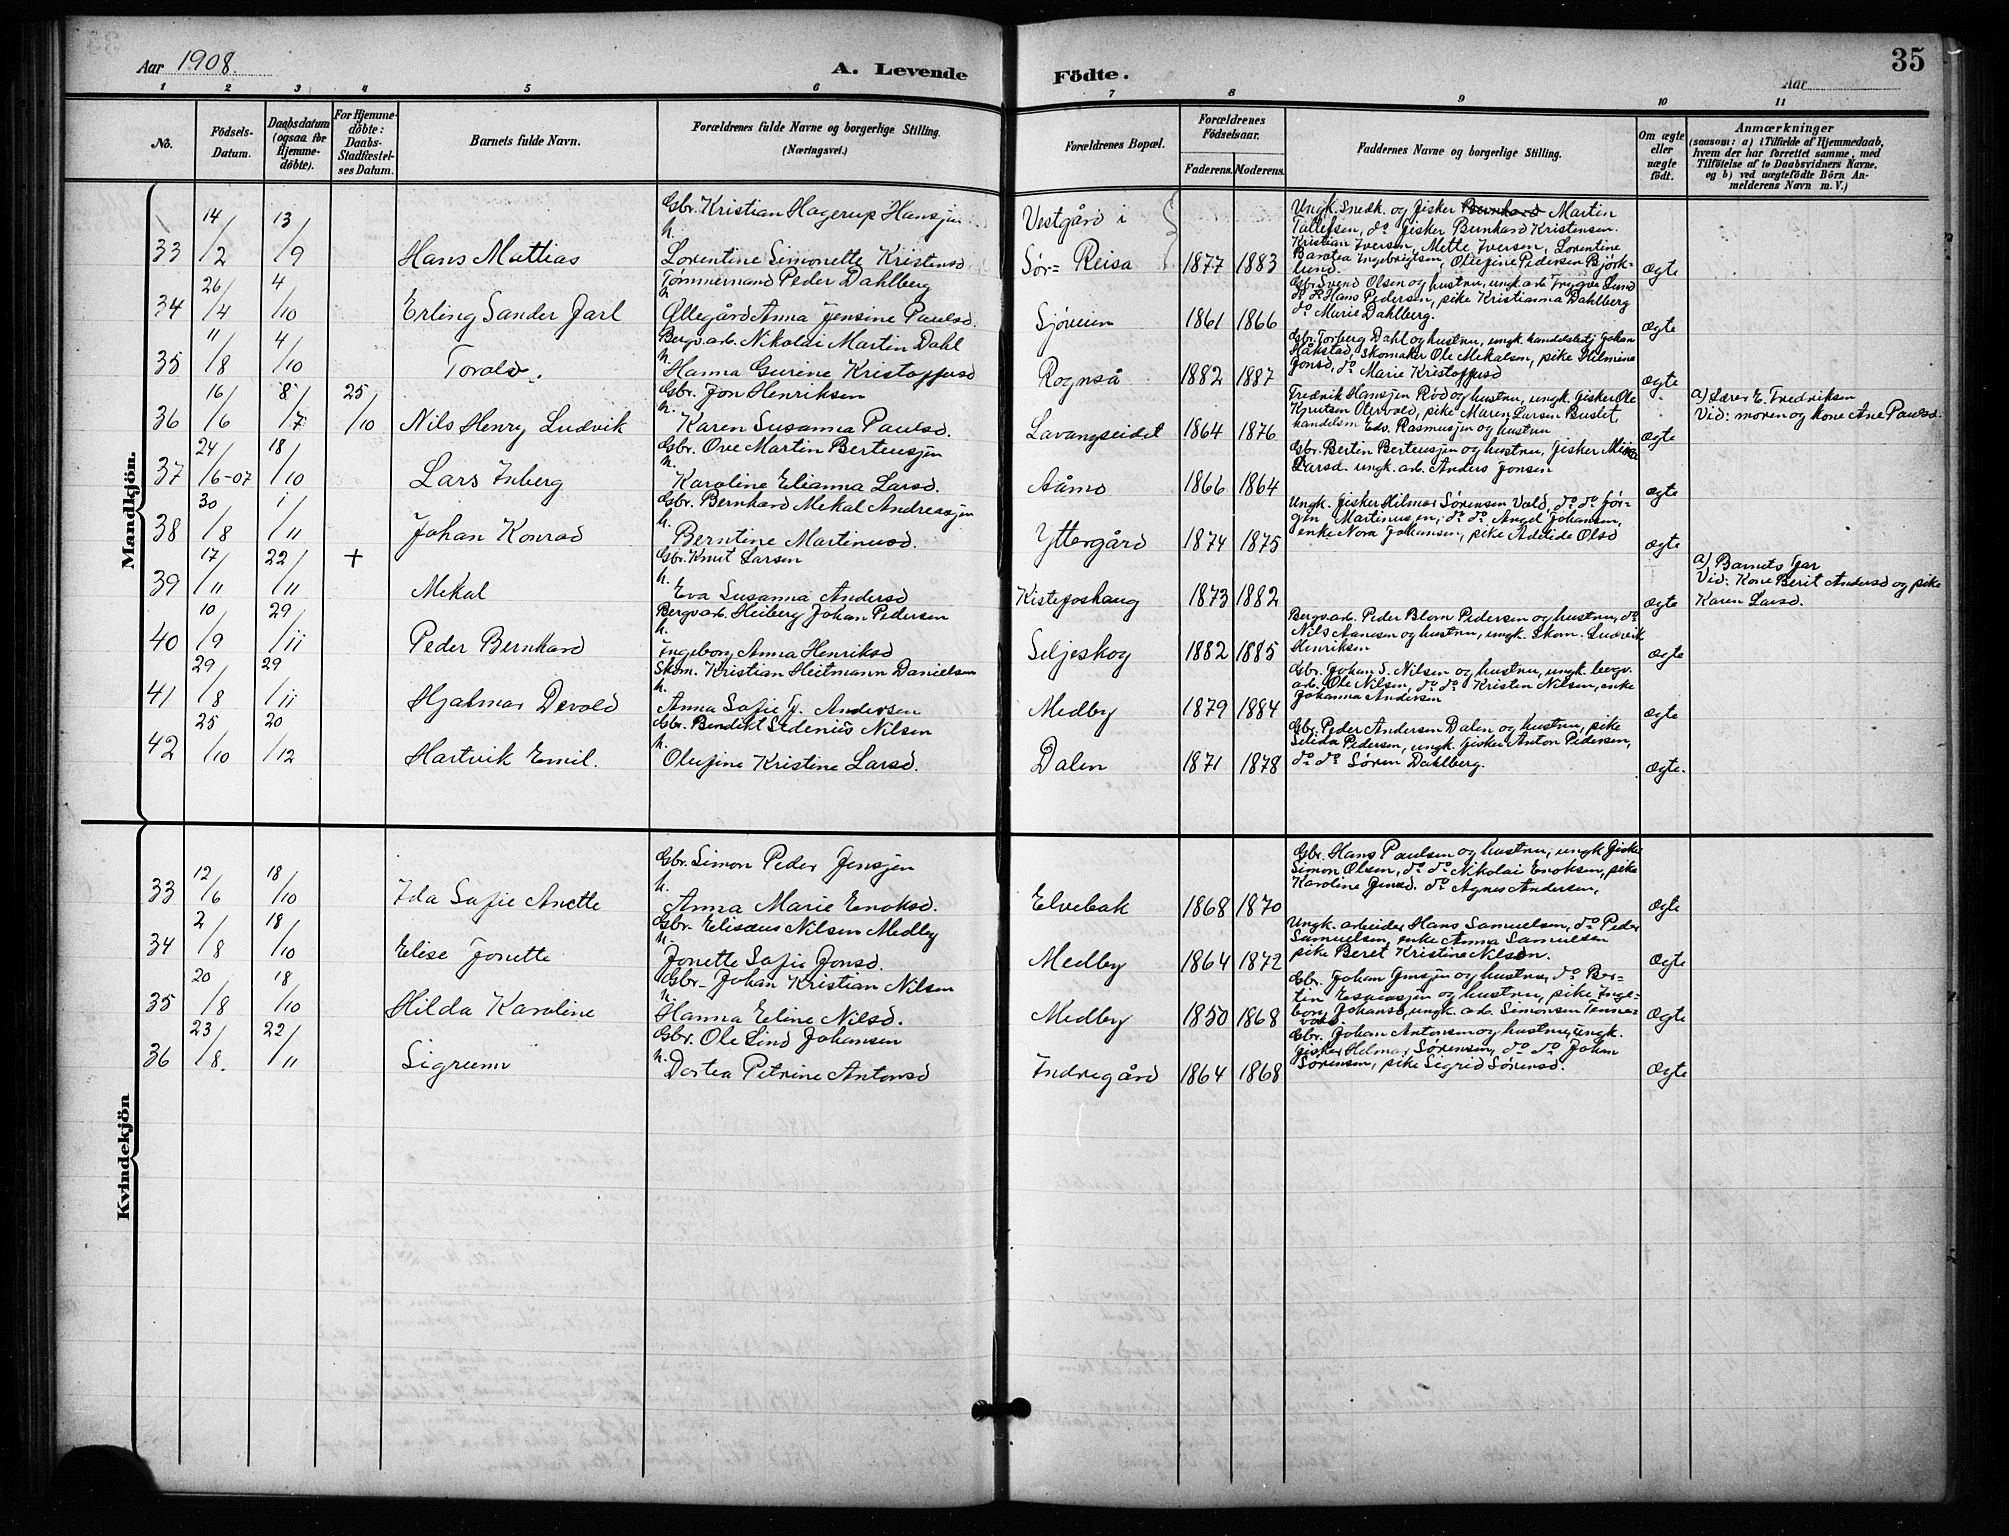 Aar 1908.
A. Levende
Födte.
Aar
35
1 2 3 4 5 6 7 8 9 10 11
No.
Födsels-Datum.
Daabsdatum (ogsaa for Hjemme-döbte).
For Hjemme-döbte: Daabs-Stadfæstel-ses Datum.
Barnets fulde Navn.
Forældrenes fulde Navne og borgerlige Stilling.
(Næringsvei.)
Forældrenes Bopæl.
Forældrenes Födselsaar.
Faderens. Moderens.
Faddernes Navne og borgerlige Stilling.
Om ægte eller uægte födt.
Anmærkninger
(saasom: a) i Tilfælde af Hjemmedaab, hvem der har forrettet samme, med Tilföielse af to Daabsvidners Navne. og b) ved uægtefödte Börn An-melderens Navn m. V.)
Mandkjön.
33 14/2 13/9 Hans Mattias
Gbr. Kristian Hagerup Hansjen
h.
Lorentine Simonette Kristensd.
Vestgård i
Sør-Reisa 1877 1883
Ungk. Snedk. og fisker Bernhard Martin
Tollefsen, do fisker Bernhard Kristensen.
Kristian Iversen, Mette Iversen, Lorentine
Barolea Ingebrigtsen, Olufine Pedersen Björk-
lund.
ægte
34 26/4 4/10 Erling Sander Jarl
Tømmermand Peder Dahlberg
h.
Ollegård Anna Jensine Paulsd.
Sjøveien 1861 1866
Gbr. Svend Olsen og hustru, ungk. arb. Trygve Lund
do do Hans Pedersen, pike Kristianna Dahlberg
do Marie Dahlberg.
ægte
35 11/8 4/10 Torald.
Bergv. arb. Nikolai Martin Dahl
h.
Hanna Gurine Kristoffersd
Rognså 1882 1887
Gbr. Torberg Dahl og hustru, ungk. handelsbetj. Johan
Håkstad, skomaker Ole Mekalsen, pike Hilmine
Jonsd, do Marie Kristoffersd
ægte
36 16/6 8/7 25/10 Nils Henry Ludvik
Gbr. Jon Henriksen
h.
Karen Susanna Paulsd.
Lavangseidet 1864 1876
Fredrik Hansjen Rød og hustru, ungk. fisker Ole
Knutsen Olervold, pike Maren Larsen Buslet,
handelsm Edv. Rasmusjen og hustru
ægte
a) Lærer E. Fredriksen
Vid: moren og kone Ane Paulsd.
37 24/6-07 18/10 Lars Inberg
Gbr. Ove Martin Berteusjen
h.
Karoline Elianna Larsd.
Aåmo 1866 1864
Gbr. Bertin Berteusjen og hustru, fisker
Larsd. ungk. arb. Anders Jonsen
ægte
38 30/8 1/11 Johan Konrad
Gbr. Bernhard Mekal Andreasjen
h.
Berntine Martinusd.
Yttergård 1874 1875
Ungk. fisker Hilmar Sørensen Vold, do do Jör-
gen Martinussen, do do Angel Johansen,
enke Nora Johansen, pike Adelide Olsd
ægte
39 17/11 22/11 + Mekal
Gbr. Knut Larsen
h.
Eva Susanna Andersd
Kistefoshaug 1873 1882
ægte
a) Barnets far
Vid: Kone Berit Andersd og pike
Karen Larsd.
40 10/9 29/11 Peder Bernhard
Bergv. arb. Heiberg Johan Pedersen
h.
Ingeborg Anna Henriksd
Seljeskog 1882 1885
Bergv. arb. Peder Blom Pedersen og hustru, do
Nils Hansen og hustru, ungk. skom. Ludvik
Henriksen
ægte
41 29/8 29/11 Hjalmar Devold
Skom. Kristian Heitmann Danielsen
h.
Anna Sofie J. Andersen
Medby 1879 1884
Gbr. Johan S. Nilsen og hustru, ungk. bergv.
arb. Ole Nilsen, do do Kristen Nilsen, enke
Johanna Andersen
ægte
42 25/10 20/12 Hartvik Emil.
Gbr. Bendikt Sedenius Nilsen
h.
Olufine Kristine Larsd.
Dalen 1871 1878
Gbr. Peder Andersen Dalen og hustru, pike
Selida Pedersen, ungk. fisker Anton Pedersen,
do do Sören Dahlberg.
ægte.
Kvindekjön
33 12/6 18/10 Ida Sofie Anette
Gbr. Simon Peder Jensjen
h.
Anna Marie Enoksd.
Elvebak 1868 1870
Gbr. Hans Paulsen og hustru, ungk fisker
Simon Olsen, do do Nikolai Enoksen, pike
Karoline Jensd. do Agnes Andersen,
ægte
34 2/8 18/10 Elise Jonette
Gbr. Elisæus Nilsen Medby
h.
Jonette Sofie Jonsd.
Medby 1864 1872
Ungk. arbeider Hans Samuelsen, do Peder
Samuelsen, enke Anna Samuelsen
pike Beret Kristine Nilsen.
ægte
35 20/8 18/10 Hilda Karoline
Gbr. Johan Kristian Nilsen
h.
Hanna Eline Nilsd.
Medby 1850 1868
Gbr. Johan Jensjen og hustru, do Ber-
tin Esaiassjen og hustru, pike Inge-
borg Johansd, ungk. arb. Simonsen Tenne-
vold.
ægte
36 23/8. 22/11 Sigrunn
Gbr. Ole Lind Johansen
h.
Dortea Petrine Antonsd
Indregård 1864 1868
Gbr. Johan Antonsen og hustru, ungk.
fisker Helmar Sørensen, do do Johan
Sørensen, pike Sigrid Sørensd.
ægte